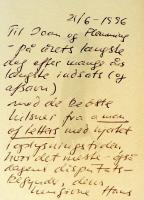 21/6-1996
Til Joan og Flemming
- på årets længste
dag efter mange års
længste indsats (og
afsavn)
med de bedste
hilsner fra a man
of letters med nytåt
i oplysningstiden,
hvor det meste - også
dagens disputats-
begyndte, deres
hengivne Hans